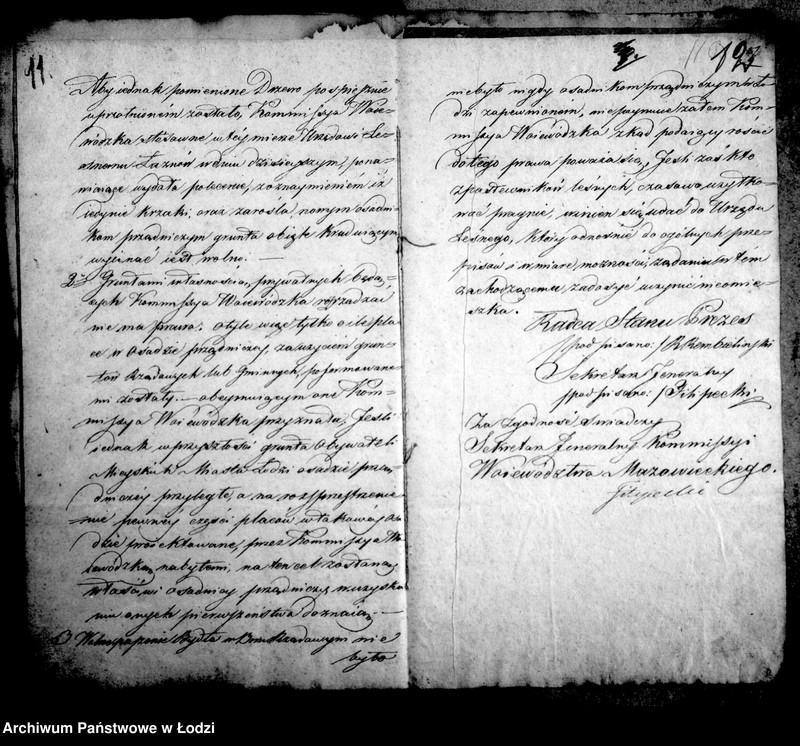 11.
Aby jednak pomienione Drzewo pospiesznie
uprzątnionem zostało, Kommissya Woie-
wódzka stósowne w tey mierze Urzędowi Le-
śnemu Łaznów w dniu dzisieyszym, pona-
wiaiące wydała polecenie, z oznaymieniem iż
iedynie krzaki, oraz zarośla, nowym osadni-
kom przędniczym grunta obięte karczuiącym
wycinać iest wolno. —
2. Gruntami własnością prywatnych będą-
cych Kommissya Woiewódzka rozrządzać
nie ma prawa. o tyle więc tylko o ile pla-
ce w osadzie przędniczey, za użyciem grun-
tów Rządowych lub Gminnych, pofórmowane-
mi zostały. — obeymuiącym one Kom-
missya Woiewódzka przyzna. Jeśli
iednak w przyszłości grunta Obywateli
Mieyskich Miasta Łodzi osadzie przę-
dniczey przyległe, a na rozprzestrzenie-
nie pewney części placów w takowéy osa-
dzie proiektowane, przez Kommissyą Wo-
iewódzką nabytemi, na ten cel zostaną,
właściwi osadnicy przędniczy, w uzyska-
niu onych pierwszeństwa doznaią. —
3 Wolne pasienie Bydła w Boru Rządowym nie
było
123
niebyło nigdy osadnikom przędniczym w Ło-
dzi zapewnionem, nie poymuie zatem Kom-
missya Woiewódzka zkąd podaiący rościć
do tego prawa poważa się, Jeśli zaś kto
z pastewników leśnych, czasowo użytko-
wać pragnie, winien się udać do Urzędu
Leśnego, który odnośnie do ogólnych prze-
pisów i w miarę możności, żądaniu w tem
zachodzącemu, zadosyć uczynić nieomie-
szka.
Radca Stanu Prezes
/podpisano:/ R Rembieliński
Sekretarz Jeneralny
/podpisano:/ Filipecki
Za Zgodność Świadczy
Sekretarz Jeneralny Kommissyi
Województwa Mazowieckiego.
Filipecki
Archiwum Państwowe w Łodzi